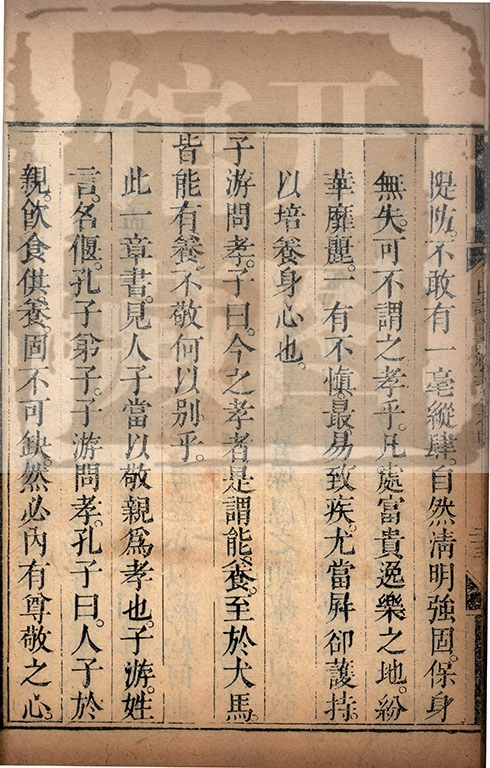 隄防。不敢有一毫縱肆。自然淸明強固。保身
無失。可不謂之孝乎。凡處富貴逸樂之地。紛
華靡麗。一有不愼。最易致疾。尤當屛卻護持。
以培養身心也。
子游問孝。子曰。今之孝者。是謂能養。至於犬馬。
皆能有養。不敬何以別乎。
此一章書。見人子當以敬親爲孝也。子游姓
言。名偃。孔子弟子。子游問孝。孔子曰。人子於
親。飮食供養。固不可缺。然必內有尊敬之心。